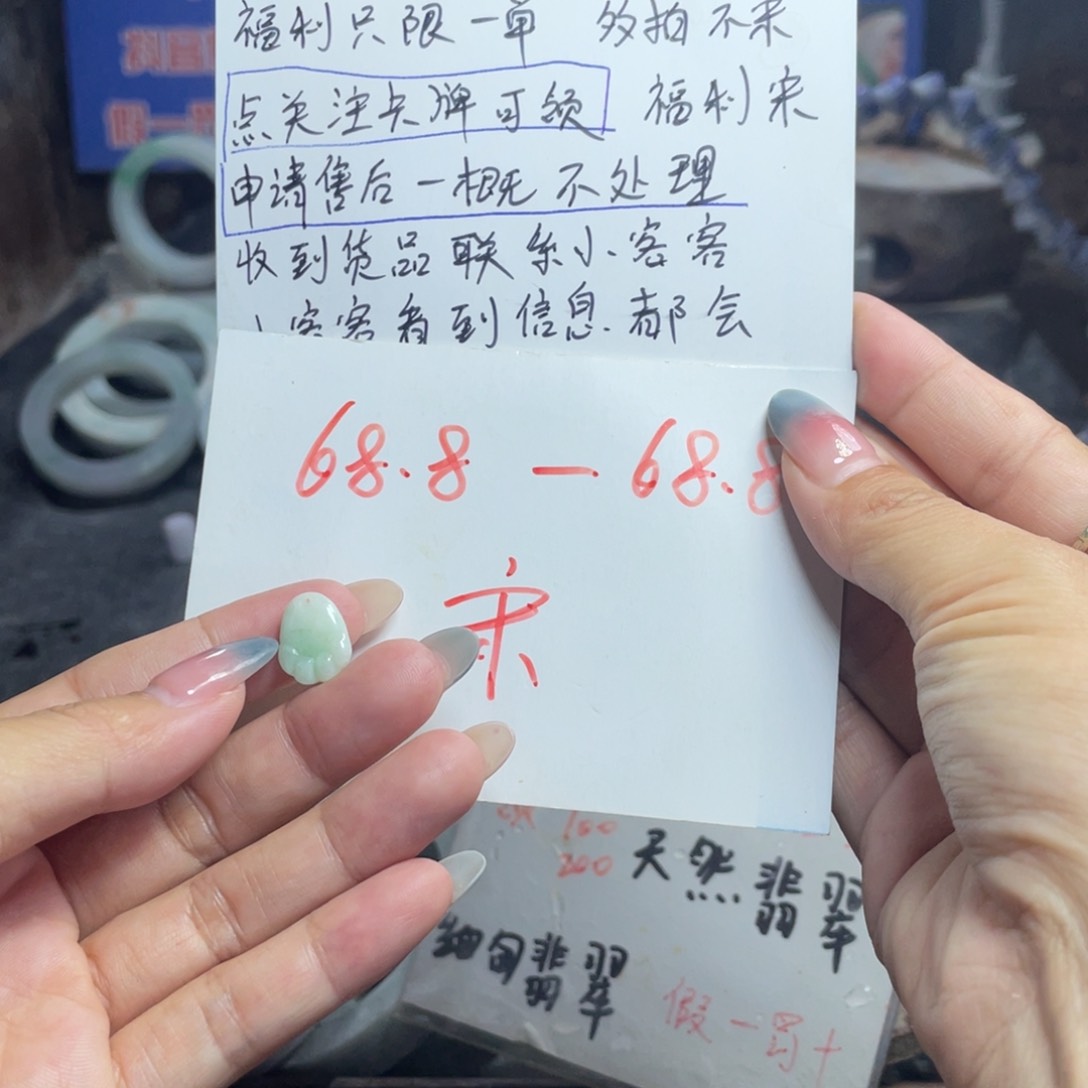 福利只限一单 多拍不来
点关注点牌可领 福利来
申请售后一概不处理
收到货品联系小客客
小客客看到信息.都会
68.8 — 68.8
来
100
200
天然翡翠
翡翠
假一罚十
假一